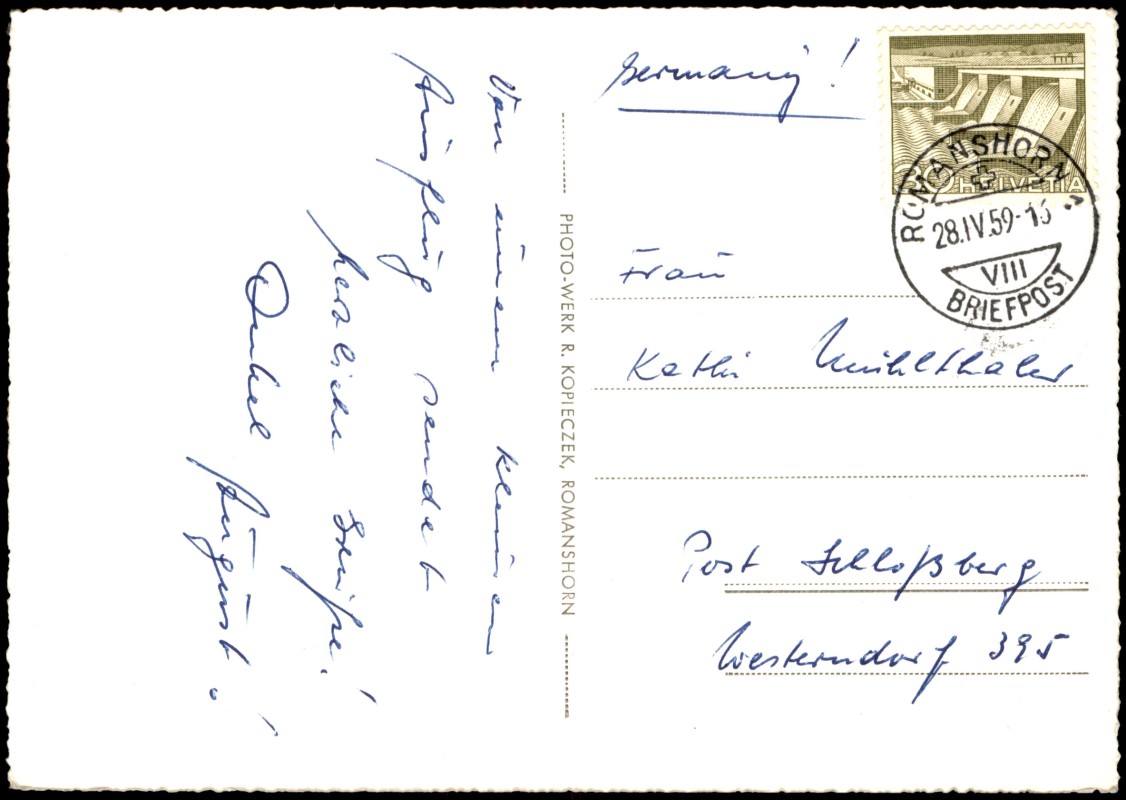 Von einem kleinen
Ausflug sendet
herzliche Grüße!
Onkel August!
PHOTO-WERK R. KOPIECZEK, ROMANSHORN
Germany!
30 HELVETIA
ROMANSHORN
28.IV.59-
VIII
BRIEFPOST
Frau
Kathi Mühlthaler
Post Schloßberg
Westerndorf 395